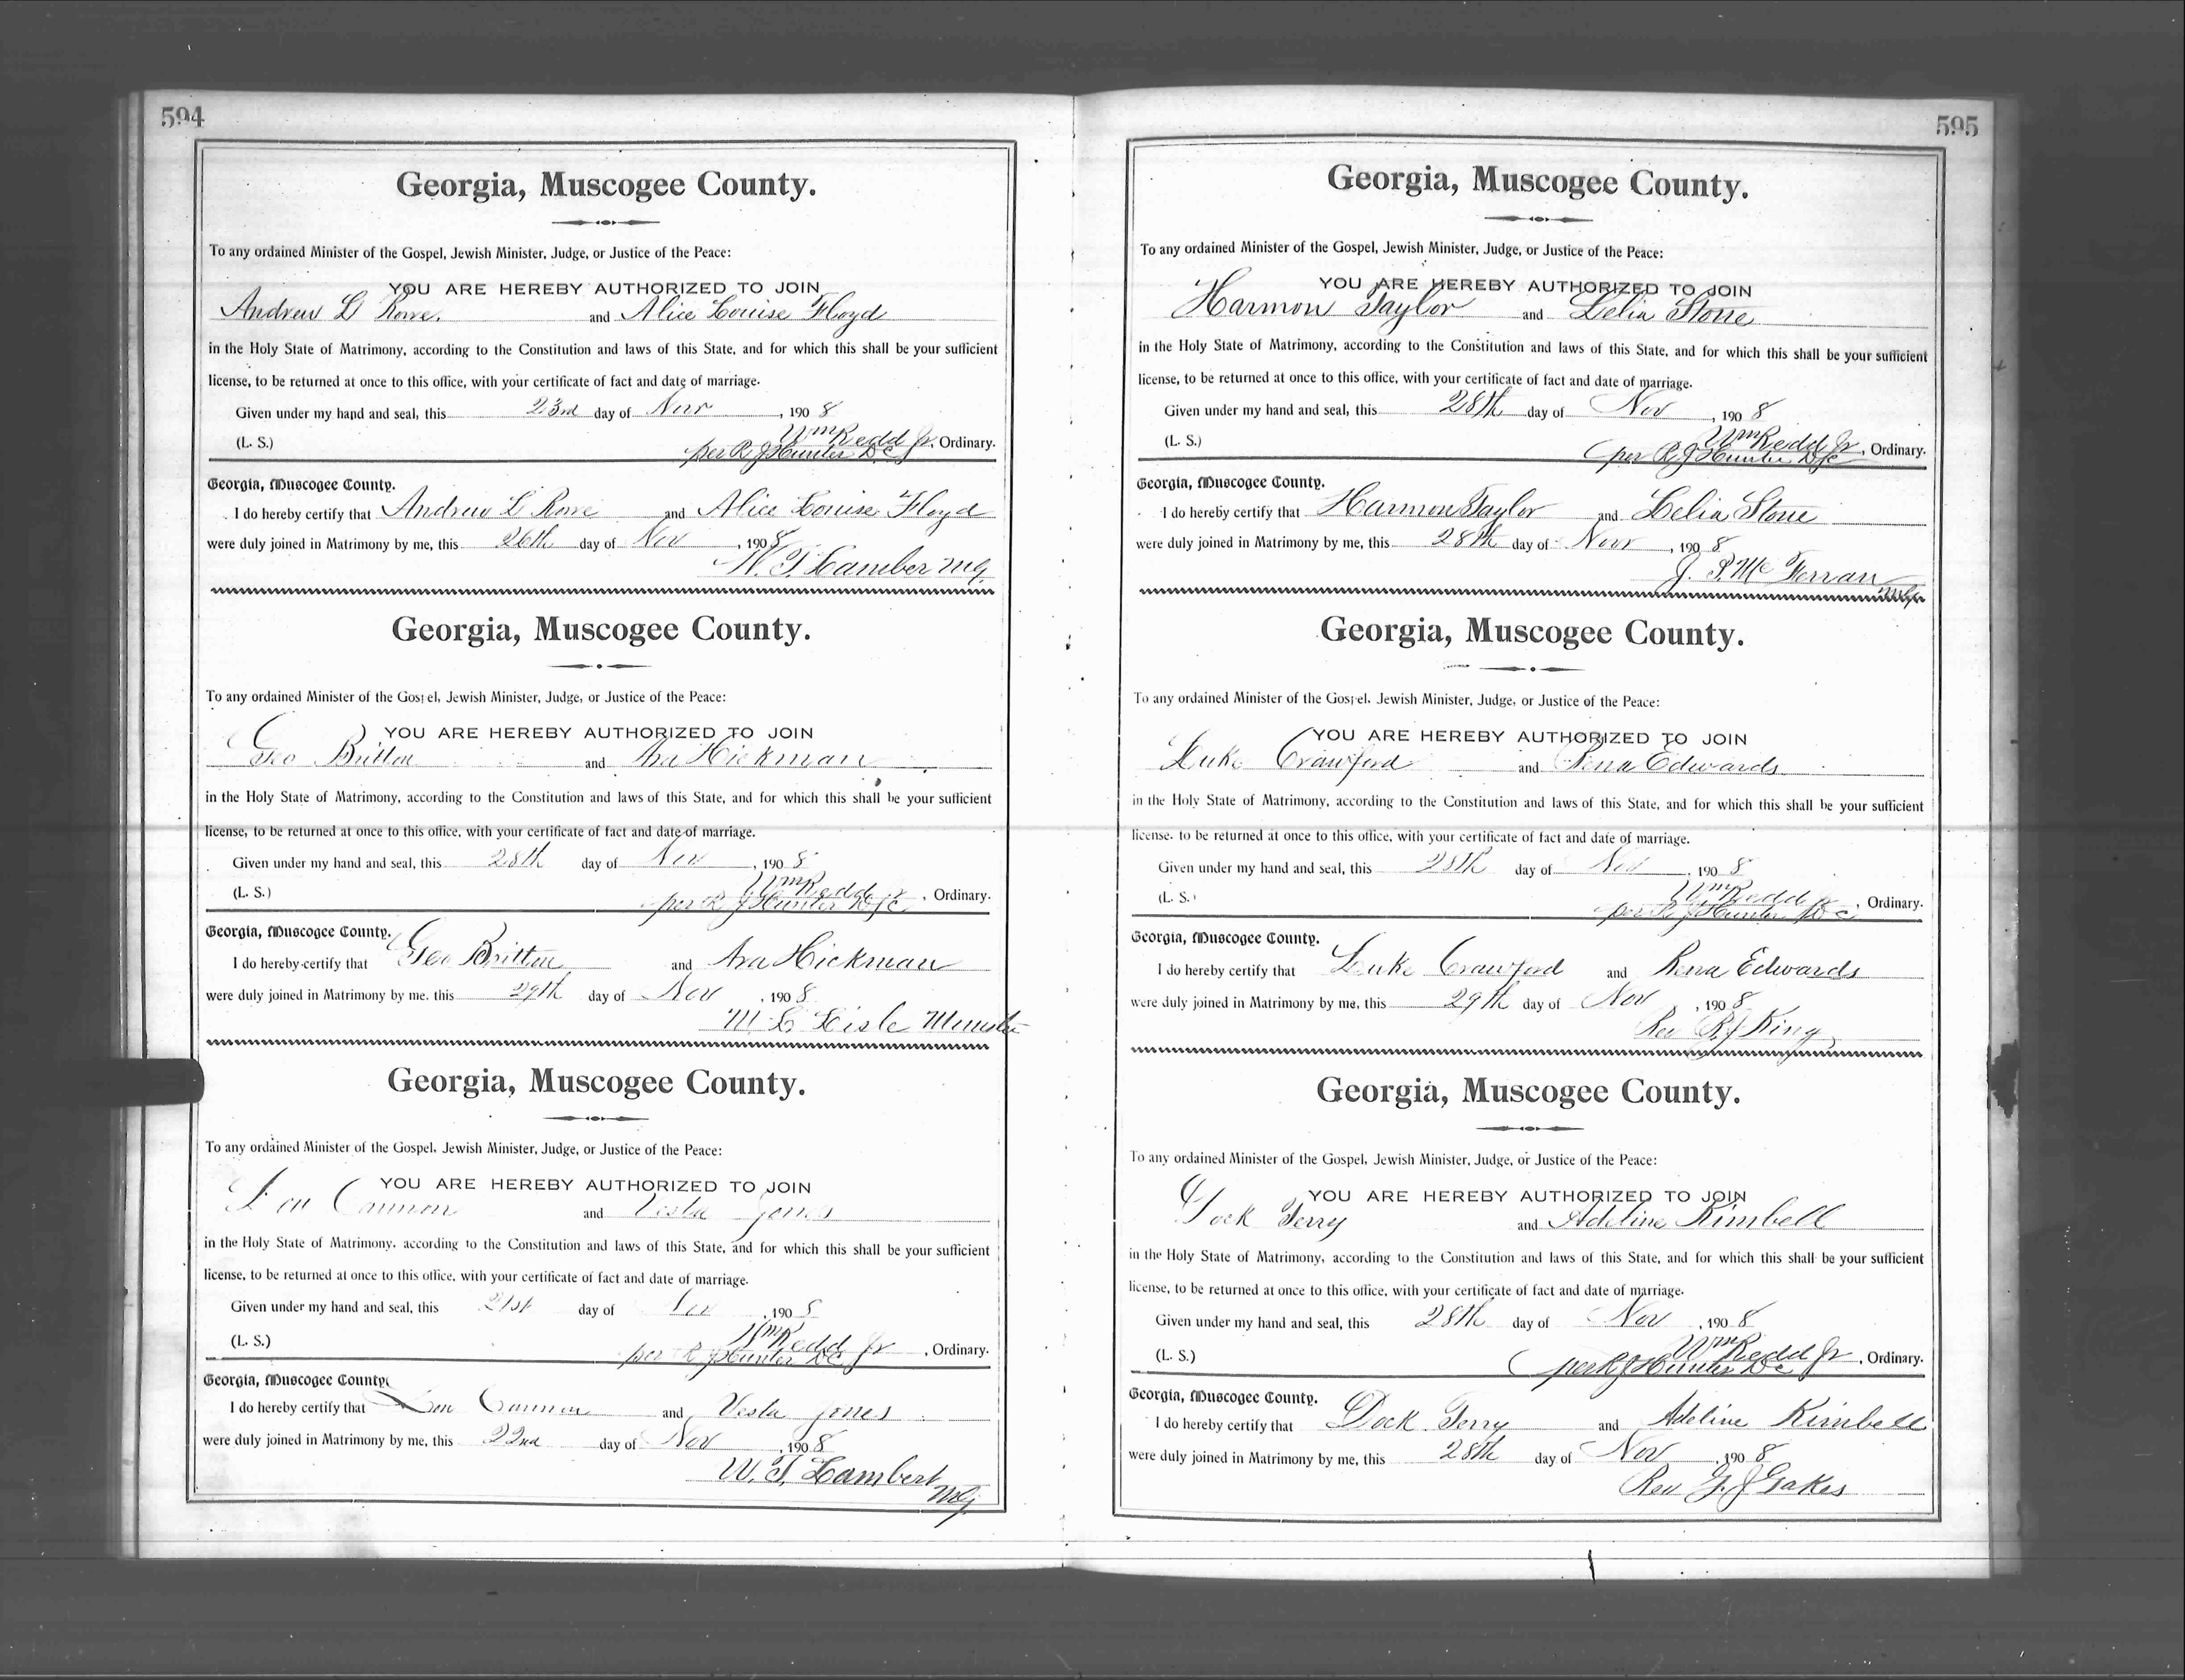 594
Georgia, Muscogee County.
To any ordained Minister of the Gospel, Jewish Minister, Judge, or Justice of the Peace:
YOU ARE HEREBY AUTHORIZED TO JOIN
Andrew L Rowe and Alice Louise Floyd
in the Holy State of Matrimony, according to the Constitution and laws of this State, and for which this shall be your sufficient
license, to be returned at once to this office, with your certificate of fact and date of marriage.
Given under my hand and seal, this 23rd day of Nov, 1908
Wm Redd Jr
(L. S.) per R J Hunter D C, Ordinary.
Georgia, Muscogee County.
I do hereby certify that Andrew L Rowe and Alice Louise Floyd
were duly joined in Matrimony by me, this 26th day of Nov, 1908
W. T. Lamber
Georgia, Muscogee County.
To any ordained Minister of the Gospel, Jewish Minister, Judge, or Justice of the Peace:
YOU ARE HEREBY AUTHORIZED TO JOIN
Geo Britton and Ara Hickman
in the Holy State of Matrimony, according to the Constitution and laws of this State, and for which this shall be your sufficient
license, to be returned at once to this office, with your certificate of fact and date of marriage.
Given under my hand and seal, this 28th day of Nov, 1908
Wm Redd Jr
(L. S.) per R J Hunter D C, Ordinary.
Georgia, Muscogee County.
I do hereby certify that Geo Britton and Ara Hickman
were duly joined in Matrimony by me, this 29th day of Nov, 1908
M L Lisle Minister
Georgia, Muscogee County.
To any ordained Minister of the Gospel, Jewish Minister, Judge, or Justice of the Peace:
YOU ARE HEREBY AUTHORIZED TO JOIN
Lon Cannon and Vesta Jones
in the Holy State of Matrimony, according to the Constitution and laws of this State, and for which this shall be your sufficient
license, to be returned at once to this office, with your certificate of fact and date of marriage.
Given under my hand and seal, this 21st day of Nov, 1908
Wm Redd Jr
(L. S.) per R J Hunter D C, Ordinary.
Georgia, Muscogee County.
I do hereby certify that Lon Cannon and Vesta Jones
were duly joined in Matrimony by me, this 22nd day of Nov, 1908
W. T. Lambert
595
Georgia, Muscogee County.
To any ordained Minister of the Gospel, Jewish Minister, Judge, or Justice of the Peace:
YOU ARE HEREBY AUTHORIZED TO JOIN
Harmon Taylor and Lelia Stone
in the Holy State of Matrimony, according to the Constitution and laws of this State, and for which this shall be your sufficient
license, to be returned at once to this office, with your certificate of fact and date of marriage.
Given under my hand and seal, this 28th day of Nov, 1908
Wm Redd Jr
(L. S.) per R J Hunter D C, Ordinary.
Georgia, Muscogee County.
I do hereby certify that Harmon Taylor and Lelia Stone
were duly joined in Matrimony by me, this 28th day of Nov, 1908
J. P. Mc Ferran
Georgia, Muscogee County.
To any ordained Minister of the Gospel, Jewish Minister, Judge, or Justice of the Peace:
YOU ARE HEREBY AUTHORIZED TO JOIN
Luke Crawford and Rena Edwards
in the Holy State of Matrimony, according to the Constitution and laws of this State, and for which this shall be your sufficient
license, to be returned at once to this office, with your certificate of fact and date of marriage.
Given under my hand and seal, this 28th day of Nov, 1908
Wm Redd Jr
(L. S.) per R J Hunter D C, Ordinary.
Georgia, Muscogee County.
I do hereby certify that Luke Crawford and Rena Edwards
were duly joined in Matrimony by me, this 29th day of Nov, 1908
Rev R. J King
Georgia, Muscogee County.
To any ordained Minister of the Gospel, Jewish Minister, Judge, or Justice of the Peace:
YOU ARE HEREBY AUTHORIZED TO JOIN
Dock Terry and Adeline Kimbell
in the Holy State of Matrimony, according to the Constitution and laws of this State, and for which this shall be your sufficient
license, to be returned at once to this office, with your certificate of fact and date of marriage.
Given under my hand and seal, this 28th day of Nov, 1908
Wm Redd Jr
(L. S.) per R J Hunter D C, Ordinary.
Georgia, Muscogee County.
I do hereby certify that Dock Terry and Adeline Kimbell
were duly joined in Matrimony by me, this 28th day of Nov, 1908
Rev G. J Oakes